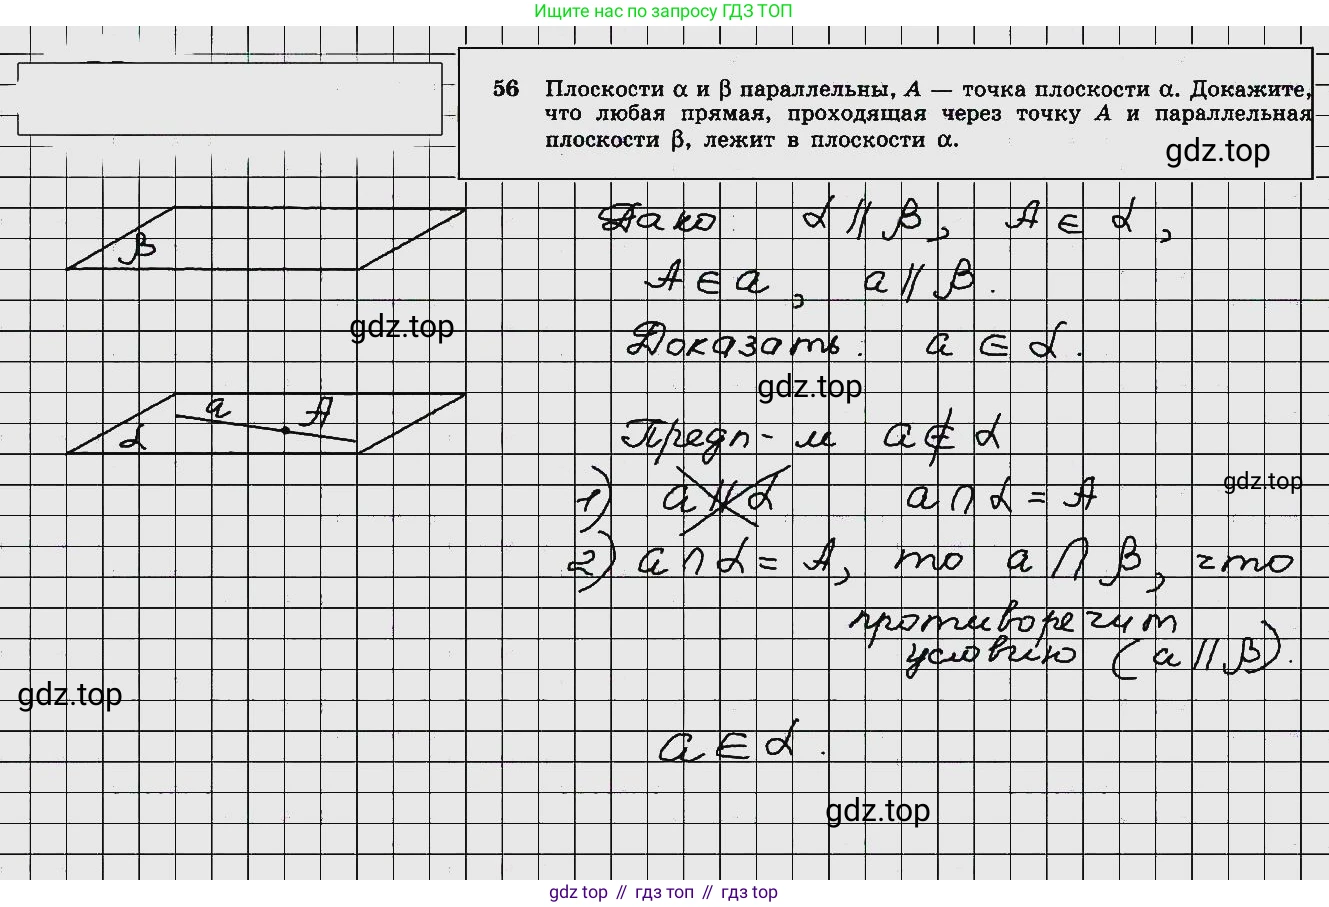 Ищите нас по запросу ГДЗ ТОП
56 Плоскости α и β параллельны, A — точка плоскости α. Докажите,
что любая прямая, проходящая через точку A и параллельная
плоскости β, лежит в плоскости α.
gdz.top
β
Дано α || β, A ∈ α,
A ∈ a, a || β.
gdz.top
Доказать: a ∈ α.
gdz.top
a A
α
Предп-м a ∉ α
1) a || α a ∩ α = A
gdz.top
2) a ∩ α = A, то a ∩ β, что
противоречит
условию (a || β).
gdz.top
a ∈ α.
gdz.top
gdz top // гдз топ // gdz top